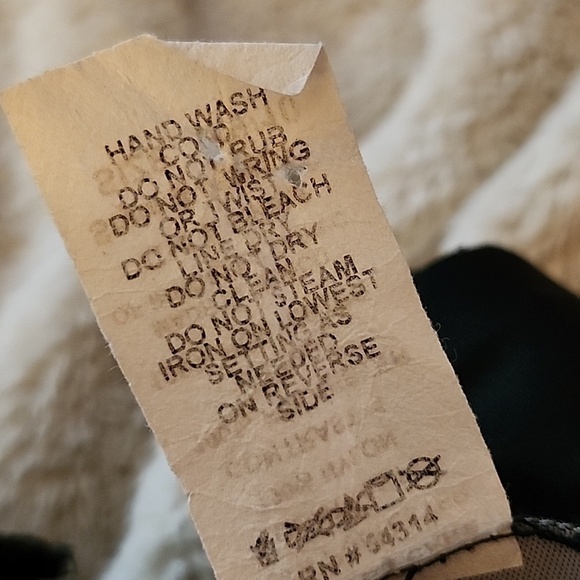 HAND WASH
COLD
DO NOT RUB
DO NOT WRING
OR TWIST
DO NOT BLEACH
LINE DRY
DO NOT DRY
CLEAN
DO NOT STEAM
IRON ON LOWEST
SETTING AS
NEEDED
ON REVERSE
SIDE
RN # 64314